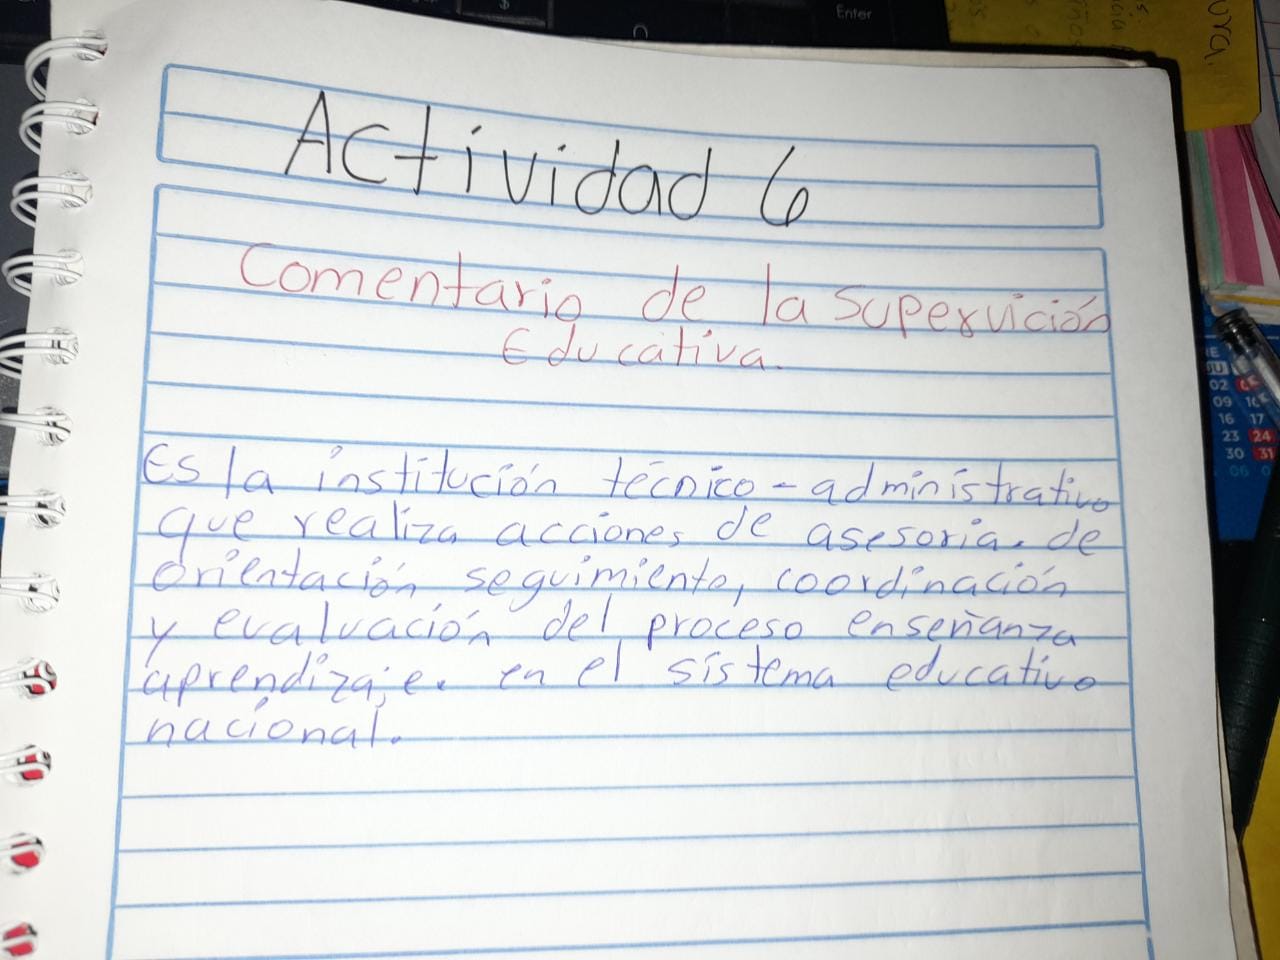 Enter
Actividad 6
Comentario de la Supervición
Educativa.
Es la institución técnico-administrativo
que realiza acciones de asesoria. de
orientación seguimiento, coordinación
y evaluación del proceso enseñanza
aprendizaje. en el sistema educativo
nacional.
02
09
16 17
23 24
30 31
06